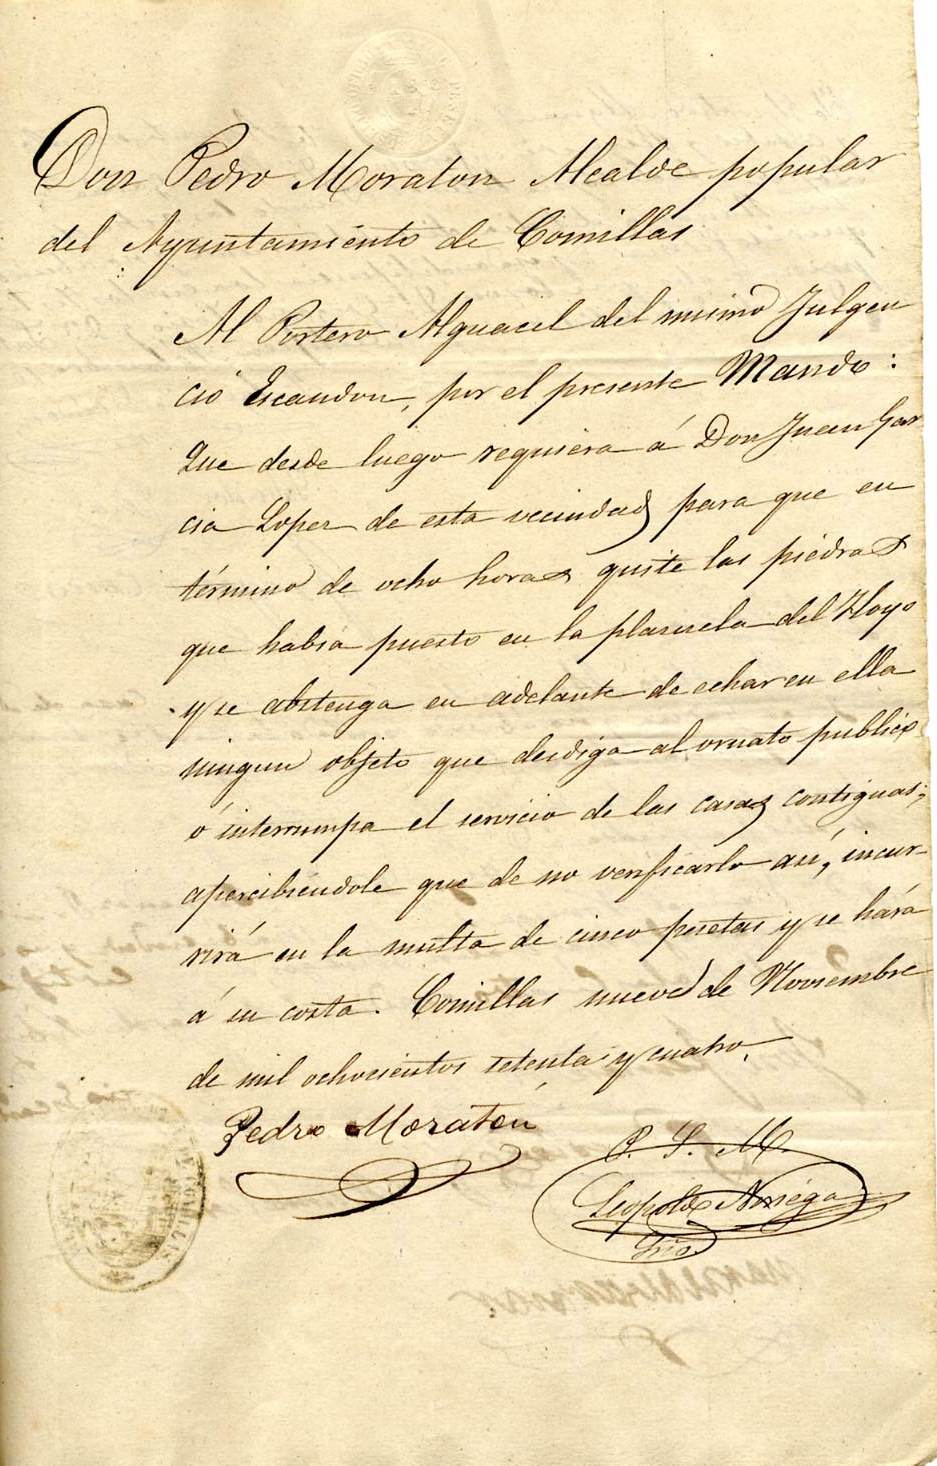 Don Pedro Moraton Alcalde popular
del Ayuntamiento de Comillas
Al Portero Alguacil del mismo Julgen
cio Escandon, por el presente Mando:
Que desde luego requiera á Don Juan Gar
cia Lopez de esta vecindad para que en
término de ocho horas quite las piedras
que habia puesto en la plazuela del Hoyo
y se abstenga en adelante de echar en ella
ningun objeto que desdiga al ornato publico
ó interrumpa el servicio de las casas contiguas;
apercibiendole que de no verificarlo asi, incur-
rirá en la multa de cinco pesetas y se hará
á su costa. Comillas nueve de Noviembre
de mil ochocientos setenta y cuatro.
Pedro Moratón
P. S. M.
Leopoldo Noriega
Srio.